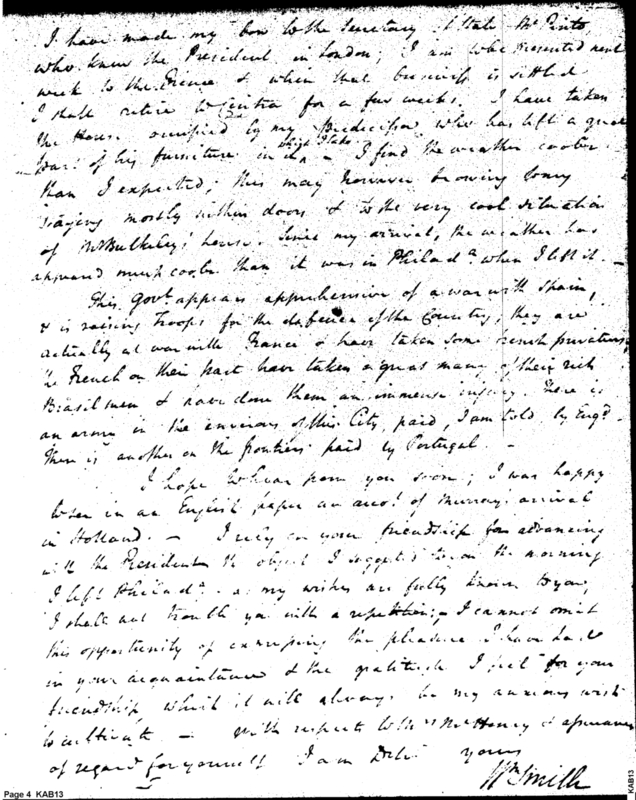 I have made my bow to the Secretary of State Mr Pinto,
who knew the President in London; I am to be presented next
week to the Prince & when that business is settled
I shall retire to Cintra for a few weeks. I have taken
the House occupied by my Predecessor who has left a great
part of his furniture in it, which I take - I find the weather cooler
than I expected; this may however be owing to my
staying mostly within doors & to the very cool situation
of Mr Bulkeley's house. Since my arrival, the weather has
appeared much cooler than it was in Philada when I left it. -
This Govt appears apprehensive of a war with Spain,
& is raising Troops for the defence of the Country; they are
actually at war with France & have taken some french privateers;
the French on their part have taken a great many of their rich
Brasil men & have done them an immense injury. There is
an army in the environs of this City, paid, I am told, by Engd.
There is another on the frontiers paid by Portugal -
I hope to hear from you soon; I was happy
to see in an English paper an acct of Murray's arrival
in Holland. - I rely on your friendship for advancing
with the President the object I suggested to you the morning
I left Philada. - as my wishes are fully known to you,
I shall not trouble you with a repetition; - I cannot omit
this opportunity of expressing the pleasure I have had
in your acquaintance & the gratitude I feel for your
friendship which it will always be my anxious wish
to cultivate - With respects to Mrs McHenry & assurances
of regard for yourself I am Dr Sir yours
Wm Smith
Page 4 KAB13
KAB13